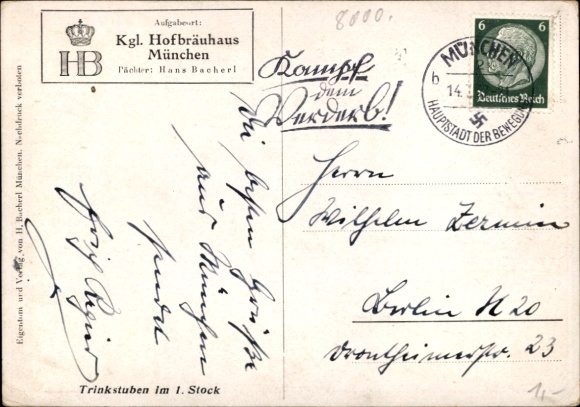 Aufgabeort:
Kgl. Hofbräuhaus
München
Pächter: Hans Bacherl
HB
8000.
Kampf
dem
Verderb!
MÜNCHEN
b
14.
HAUPTSTADT DER BEWEGUNG
6 6
Deutsches Reich
Eigentum und Verlag von H. Bacherl München. Nachdruck verboten
Die besten Grüße
aus München
sendet
Herrn
Wilhelm Zermin
Berlin N 20
Drontheimerstr. 23
Trinkstuben im 1. Stock
1,-